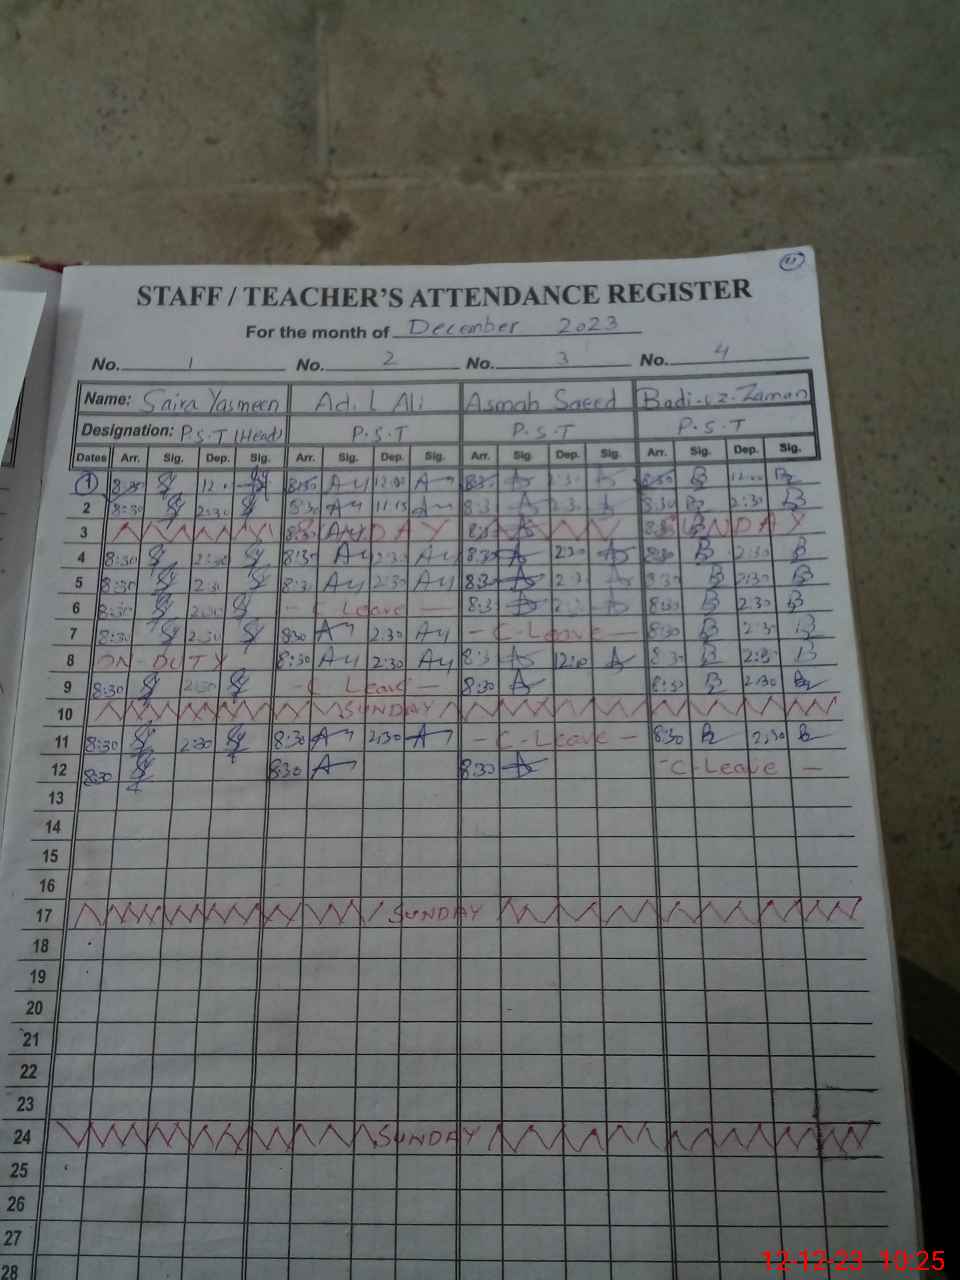 STAFF / TEACHER'S ATTENDANCE REGISTER
For the month of December 2023
No. 1 No. 2 No. 3 No. 4
Name: Saira Yasmeen Adil Ali Asmah Saeed Badi-uz-Zaman
Designation: P.S.T (Head) P.S.T P.S.T P.S.T
Dates Arr. Sig. Dep. Sig. Arr. Sig. Dep. Sig. Arr. Sig. Dep. Sig. Arr. Sig. Dep. Sig.
1 12:00 12:00
2 8:30 2:30 11:15 8:30 2:30
3 SUNDAY
4 8:30 8:30 2:30 8:30 2:30 2:30
5 8:30 2:30 8:30 2:30 8:30 8:30 2:30
6 8:30 - C Leave - 8:30 8:30 2:30
7 8:30 2:30 8:30 2:30 - C-Leave - 8:30 2:30
8 ON-DUTY 8:30 2:30 8:30 12:00 8:30 2:30
9 8:30 2:30 - C Leave - 8:30 8:30 2:30
10 SUNDAY
11 8:30 2:30 8:30 2:30 - C-Leave - 8:30 2:30
12 8:30 8:30 8:30 - C-Leave -
13
14
15
16
17 SUNDAY
18
19
20
21
22
23
24 SUNDAY
25
26
27
28
12-12-23 10:25